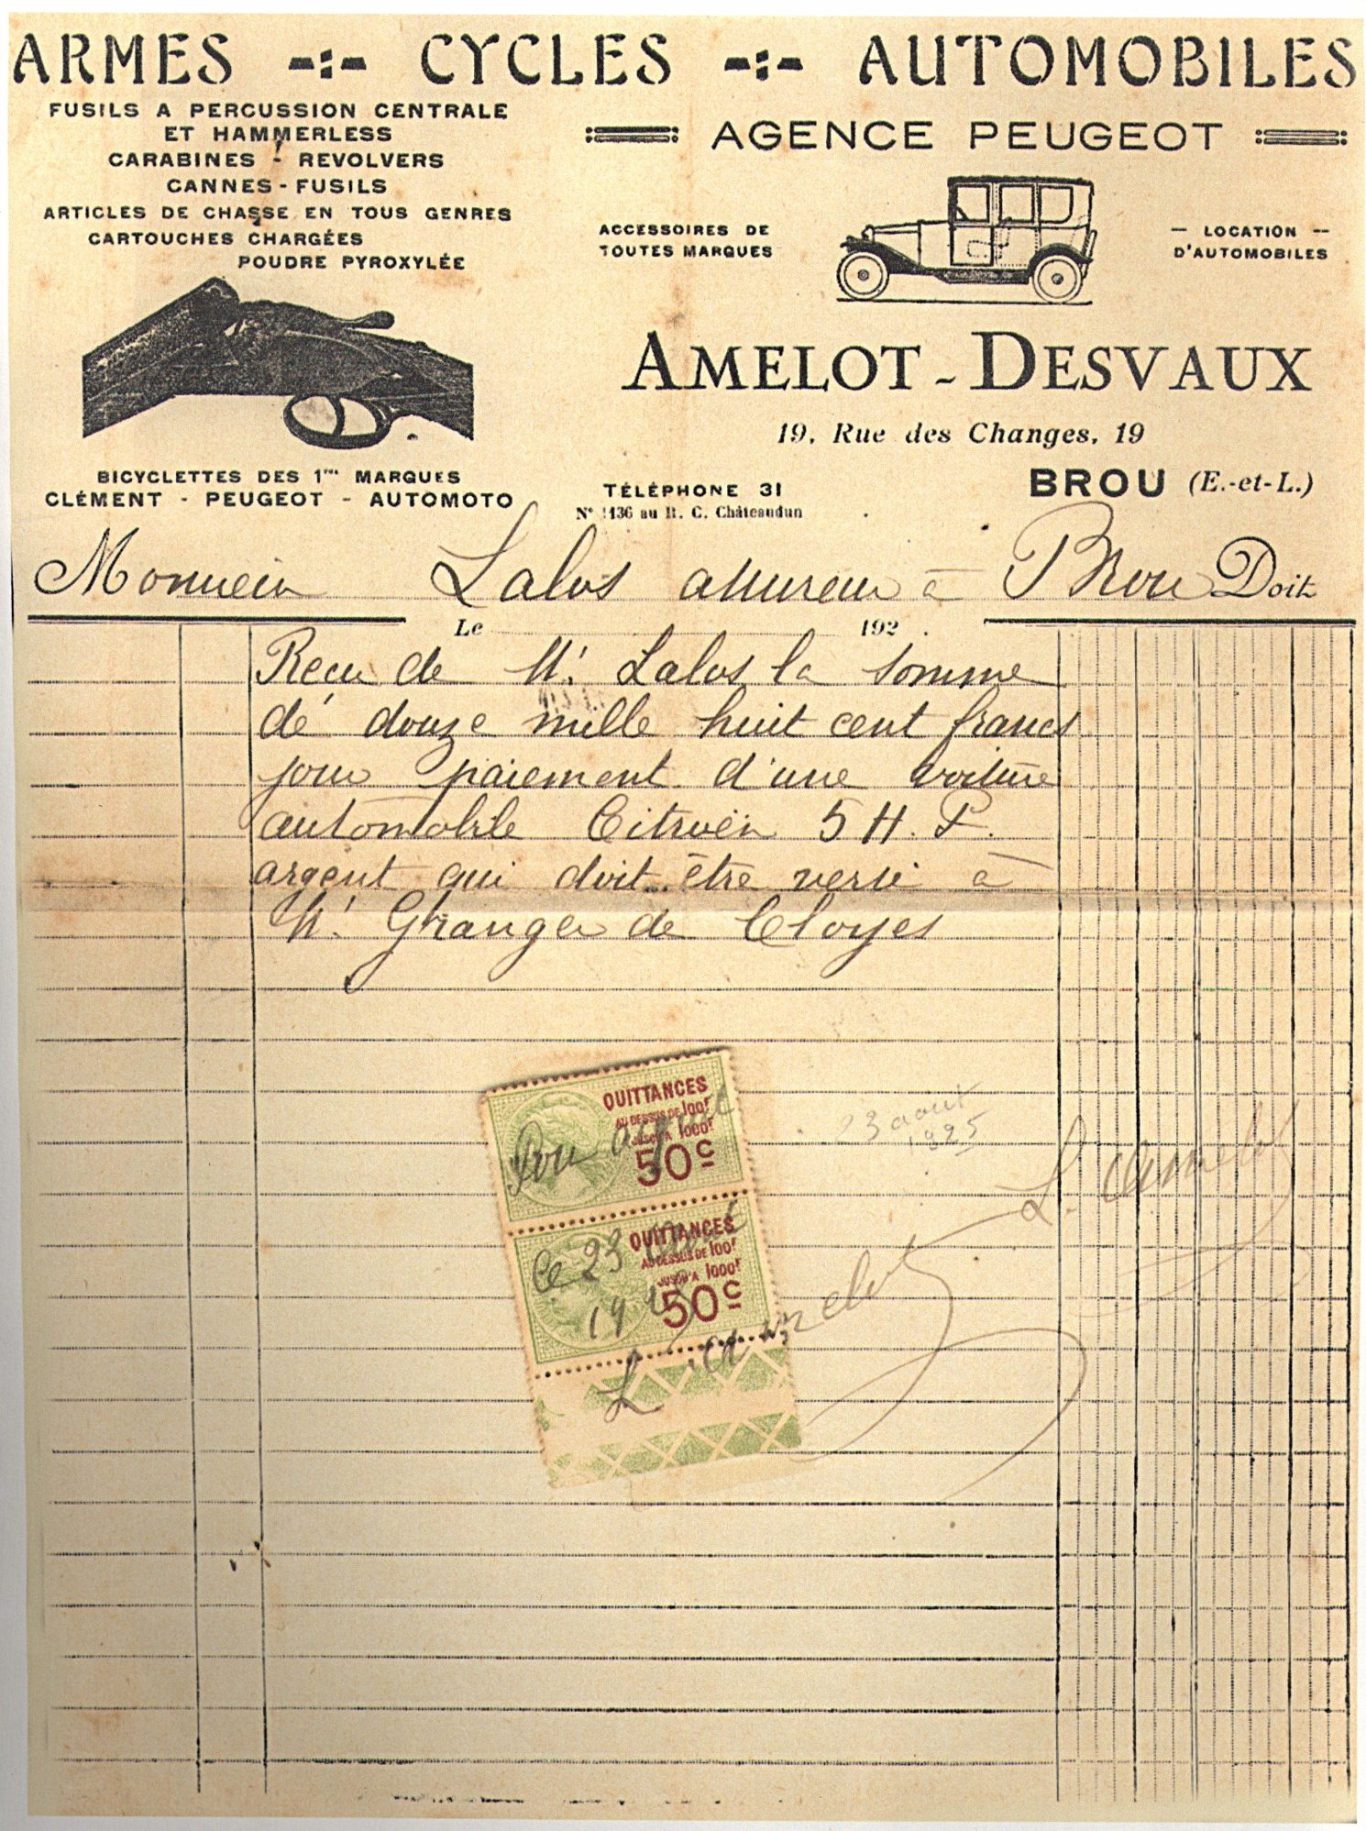 ARMES -:- CYCLES -:- AUTOMOBILES
FUSILS A PERCUSSION CENTRALE
ET HAMMERLESS
CARABINES - REVOLVERS
CANNES - FUSILS
ARTICLES DE CHASSE EN TOUS GENRES
CARTOUCHES CHARGÉES
POUDRE PYROXYLÉE
BICYCLETTES DES 1res MARQUES
CLÉMENT - PEUGEOT - AUTOMOTO
AGENCE PEUGEOT
ACCESSOIRES DE
TOUTES MARQUES
— LOCATION --
D'AUTOMOBILES
AMELOT - DESVAUX
19, Rue des Changes, 19
BROU (E.-et-L.)
TÉLÉPHONE 31
N° 1136 au R. C. Châteaudun
Monsieur Lalos assureur à Brou Doit
Le 192 .
Recu de Mr Lalos la somme
de douze mille huit cent francs
pour paiement d'une voiture
automobile Citroën 5 H. P.
argent qui doit être versé à
Mr Granger de Cloyes
QUITTANCES
AU DESSUS DE 100f
JUSQU'A 1000f
50c
Pour acquit
QUITTANCES
AU DESSUS DE 100f
JUSQU'A 1000f
50c
Le 23 août
1925
L. Amelot
23 aout
1925
L. Amelot